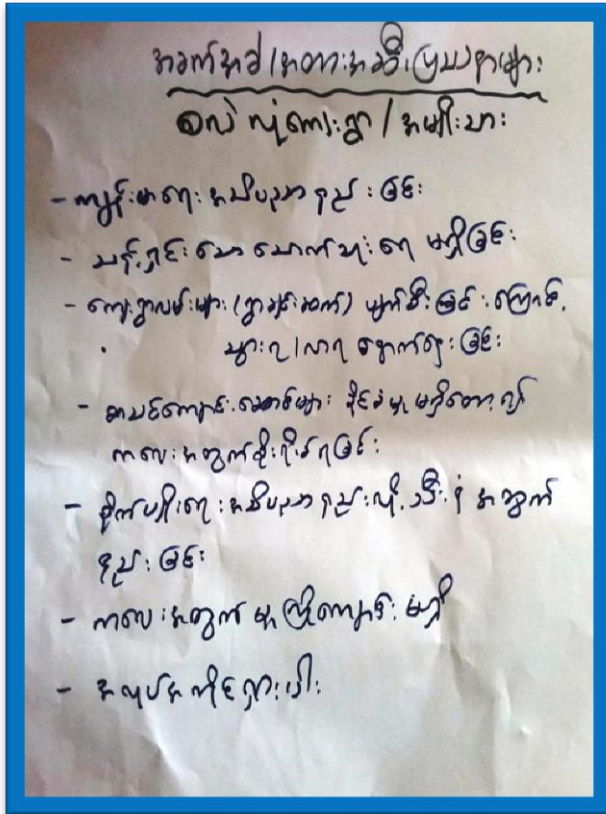 အခက်အခဲ/အတားအဆီးပြဿနာများ
စလဲလုံကျေးရွာ / အမျိုးသား
- ကျန်းမာရေး အသိပညာ နည်းခြင်း
- သန့်ရှင်းသော သောက်သုံးရေ မရှိခြင်း
- ကျေးရွာလမ်းများ (ရွာချင်းဆက်) ပျက်စီးခြင်းကြောင့်
သွားရ/လာရ နှောက်နှေးခြင်း
- စာသင်ကျောင်းဆောင်များ ခိုင်ခံ့မှုမရှိတော့၍
ကလေးအတွက်စိုးရိမ်ရခြင်း
- စိုက်ပျိုးရေးအသိပညာနည်းလို့ သီးနှံ အထွက်
နည်းခြင်း
- ကလေးအတွက် မူကြိုကျောင်း မရှိ
- အလုပ်အကိုင်ရှားပါး